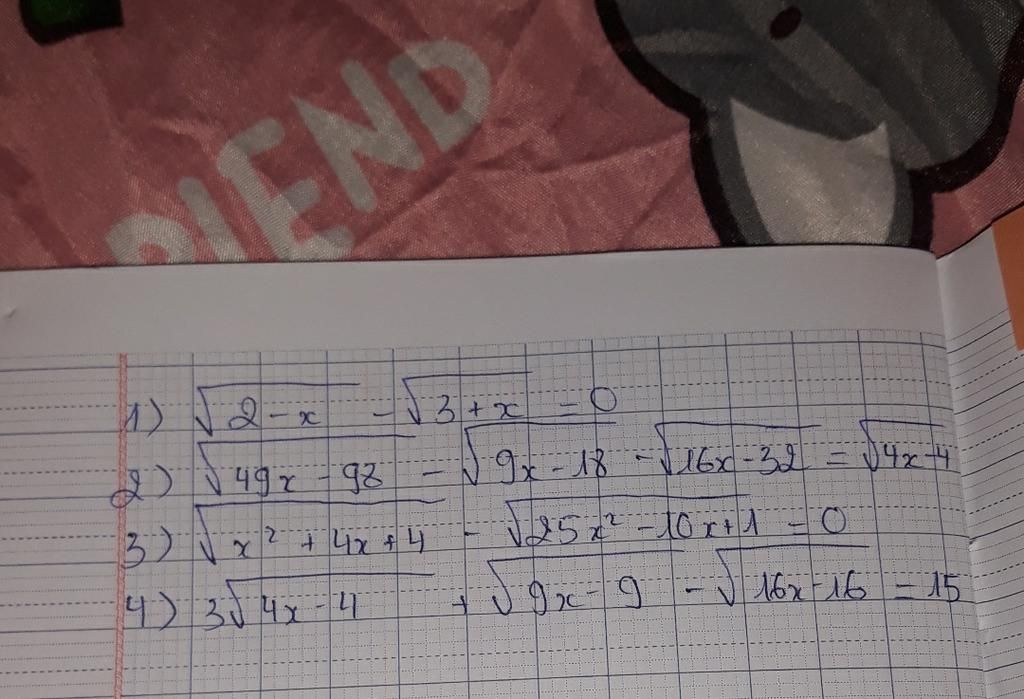 RIEND
1) √2-x - √3+x = 0
2) √49x-98 - √9x-18 - √16x-32 = √4x-4
3) √x²+4x+4 - √25x²-10x+1 = 0
4) 3√4x-4 + √9x-9 - √16x-16 = 15